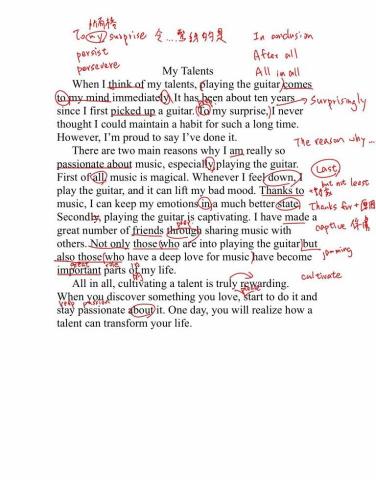 To my surprise 令...驚訝的是
In conclusion
persist
After all
persevere
All in all
My Talents
When I think of my talents, playing the guitar comes
to my mind immediately. It has been about ten years
Surprisingly
since I first picked up a guitar. To my surprise, I never
thought I could maintain a habit for such a long time.
The reason why...
However, I'm proud to say I've done it.
There are two main reasons why I am really so
passionate about music, especially playing the guitar.
Last
First of all, music is magical. Whenever I feel down, I
but not least
play the guitar, and it can lift my bad mood. Thanks to
music, I can keep my emotions in a much better state.
Thanks for +
Secondly, playing the guitar is captivating. I have made a
captive 俘虜
play
great number of friends through sharing music with
others. Not only those who are into playing the guitar but
jamming
also those who have a deep love for music have become
great role in
important parts of my life.
cultivate
All in all, cultivating a talent is truly rewarding.
When you discover something you love, start to do it and
keep passion
stay passionate about it. One day, you will realize how a
talent can transform your life.